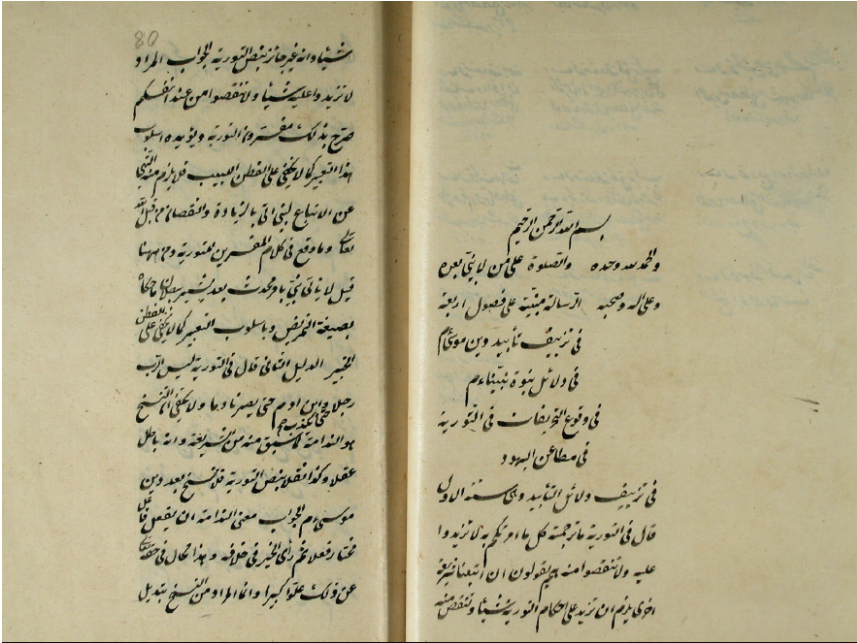 بسم الله الرحمن الرحيم
والحمد لله وحده والصلوة على من لا نبي بعده
وعلى اله وصحبه الرسالة مبنية على فصول اربعة
في تزييف تأبيد دين موسى م
في دلائل نبوة نبينا ءم
في وقوع التحريفات في التورية
في مطاعن اليهود
في تزييف دلائل التأبيد وهي ستة الاول
قال في التورية ما ترجمته كل ما امرتكم به لا تزيدوا
عليه ولا تنقصوا منه هم يقولون ان اتبعنا شريعة
اخرى يلزم ان نزيد على احكام التورية شيئا وننقص منه
80
شيئا وانه غير جائز بنص التورية الجواب المراد
لا تزيدوا عليه شيئا ولا تنقصوا من عند انفسكم
صرح بذلك مفسروا التورية ويؤيده اسلوب
هذا التعبير كما لا يخفى على الفطن اللبيب فلا يلزم منه النهي
عن الاتباع لنبي اتى بالزيادة والنقصان من قبل الله
تعالى وما وقع في كلام المفسرين للتورية ومن ههنا
قيل لا يأتي نبي بامر محدث بعد يشير ببطلان ما حكاه
بصيغة التمريض وباسلوب التعبير كما لا يخفى على الفطن
الخبير الدليل الثاني قال في التورية ليس الرب
رجلا وابن ادم حتى يصير نادما ولا يخفى ان النسخ
هو الندامة لما سبق منه من الشريعة وانه باطل
عقلا وكذا نقلا بنص التورية فلا نسخ بعد دين
موسى ءم الجواب معنى الندامة ان يفعل فاعل
مختار فعلا ثم رأى الخير في خلافه وهذا محال في حقه تعالى
عن ذلك علوا كبيرا وانما المراد من النسخ تبديل